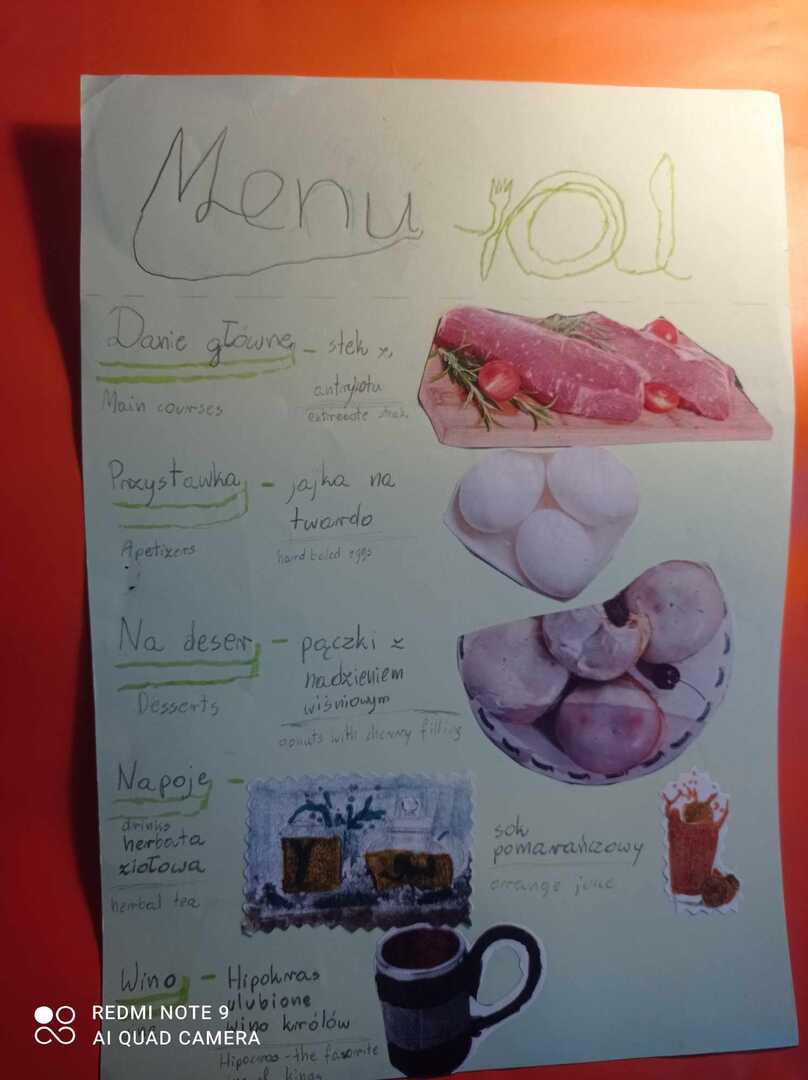 Menu
Danie główne - stek z
antrykotu
Main courses
entrecote steak
Przystawka - jajka na
twardo
Apetizers
hard boiled eggs
Na deser - pączki z
nadzieniem
wiśniowym
Desserts
donuts with cherry filling
Napoje -
drinks
herbata
ziołowa
herbal tea
sok
pomarańczowy
orange juice
Wino - Hipokras
ulubione
wino królów
Hipocras - the favorite
of kings
REDMI NOTE 9
AI QUAD CAMERA